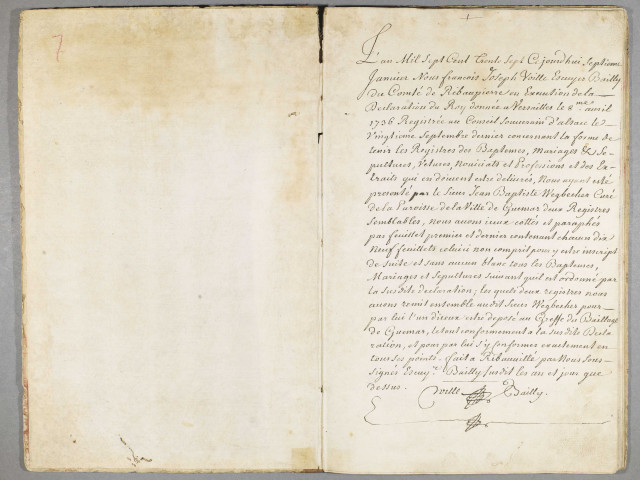 7
L'an Mil Sept Cent Trente Sept Ce jourdhui Septieme
Janvier Nous francois Joseph Voille Escuyer Bailly
du Comté de Ribaupierre en Execution de la
Declaration du Roy donnée a Versailles le 8.me avril
1736 Registrée au Conseil Souverain d'alsace le
Vingtieme Septembre dernier concernant la forme de
tenir les Registres des Baptemes, Mariages & Se-
pultures, Vetures, Noviciats et Professions et des Ex-
traits qui en doivent estre delivrés, Nous ayant esté
presenté par le Sieur Jean Baptiste Wegbecher Curé
de la Paroisse de la Ville de Guemar deux Registres
Semblables, nous avons iceux cottés et paraphés
par feuillet premier et dernier contenant chacun dix
Neuf feuillets celuici non compris pour y estre inscript
de suite et sans aucun blanc tous les Baptemes,
Mariages et Sepultures suivant quil est ordonné par
la Susdite declaration, les quels deux registres nous
avons remit ensemble audit Sieur Wegbecher pour
par lui l'un d'iceux estre deposé au Greffe du Bailliage
de Guemar, le tout conformement a la Susdite Decla-
ration, et pour par lui s'y conformer exactement en
tous ses points. fait a Ribauvillé par Nous Sous-
signés Escuyr. Bailly susdit les an et jour que
dessus.
Voille Bailly.